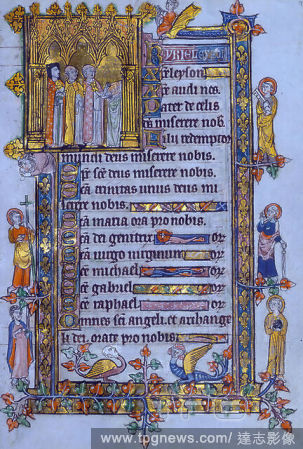 KYRIELEYSON
Xpeleyson
Xpe audi nos
Pater de celis
ds miserere nob
Fili redemptor
mundi deus miserere nobis.
Spc scē deus miserere nobis.
Scā trinitas unius deus mi
serere nobis.
Scā maria ora pro nobis.
Scā dei genitrix or
Scā uirgo uirginum or
Scē michael or
Scē gabriel or
Scē raphael or
Omnes scī angeli. et archange
li dei. orate pro nobis
www.tpgnews.com/ 達志影像